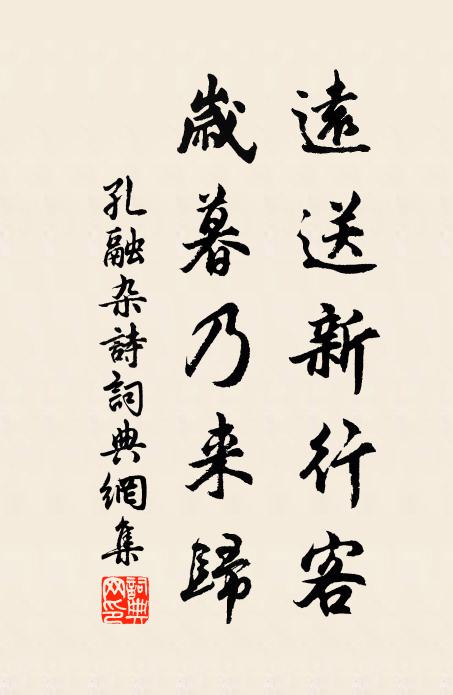 遠送新行客
歲暮乃来歸
孔融杂詩詞典網集
詞典
网印